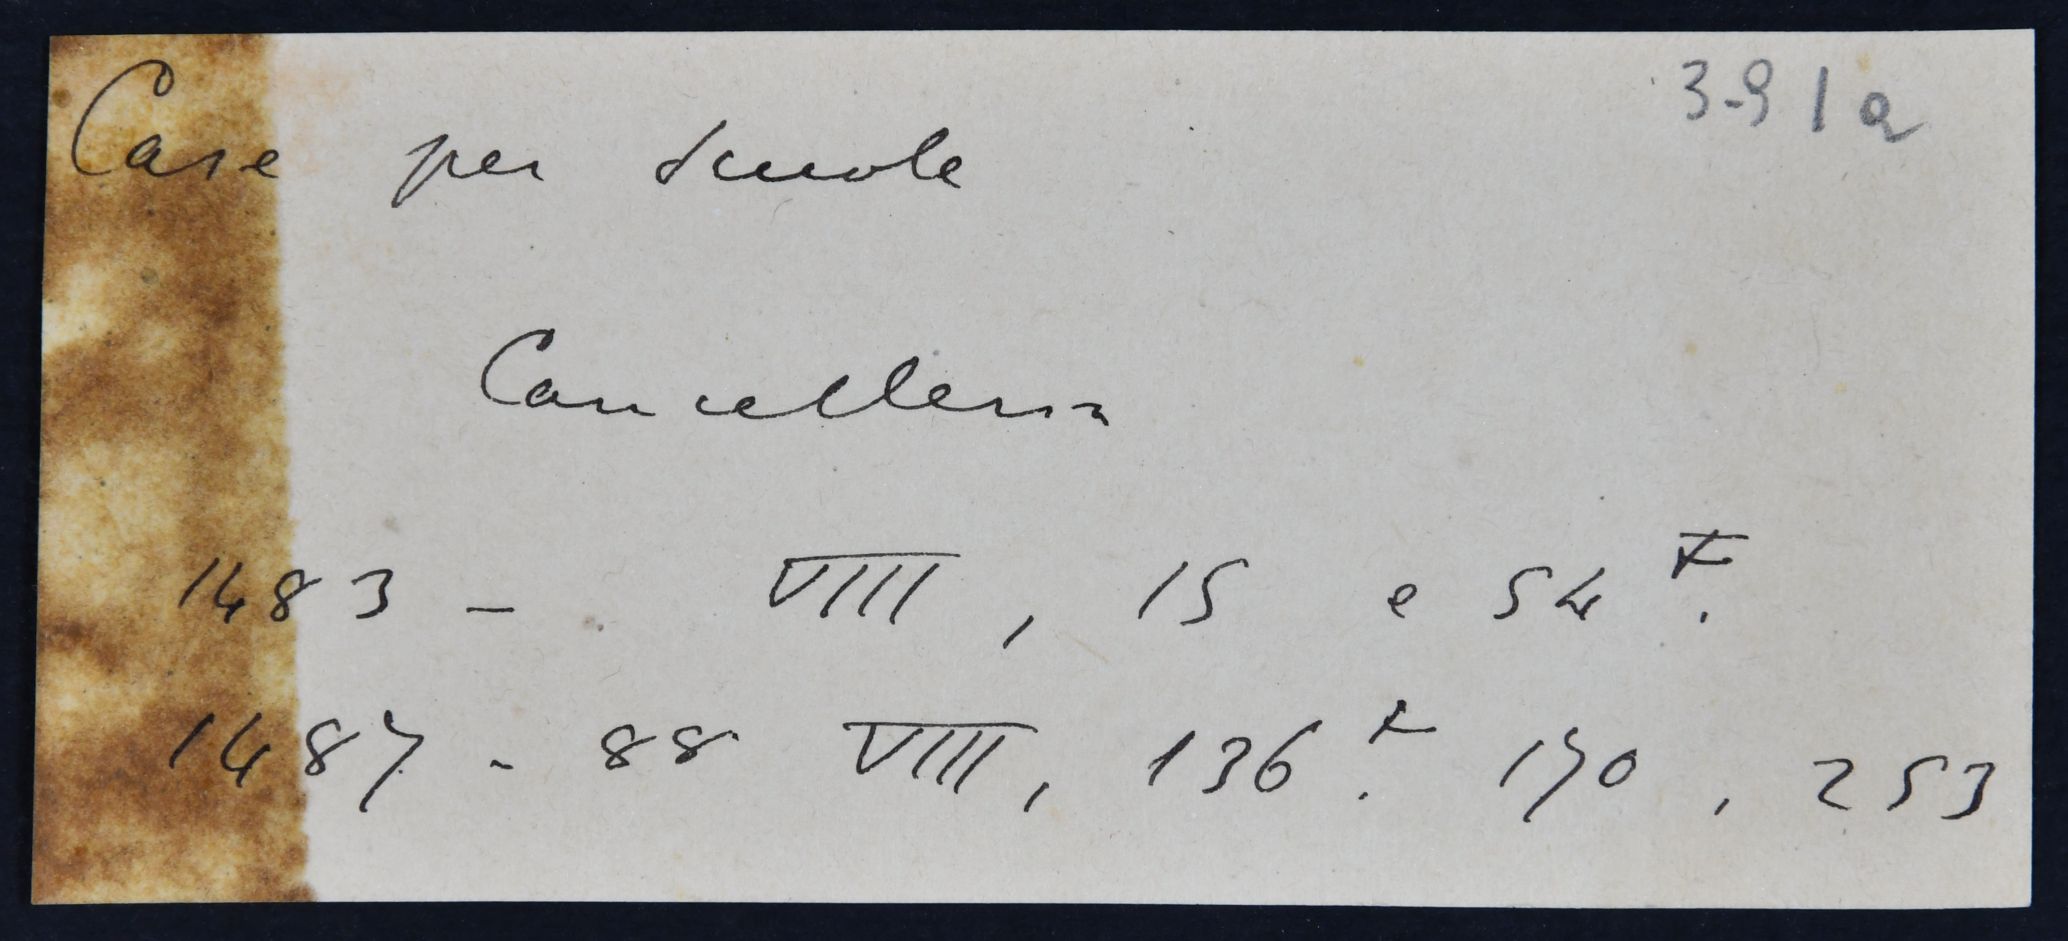 3-91a
Case per Scuole
Cancelleria
1483 - VIII, 15 e 54 t.
1487 - 88 VIII, 136 t. 170, 253